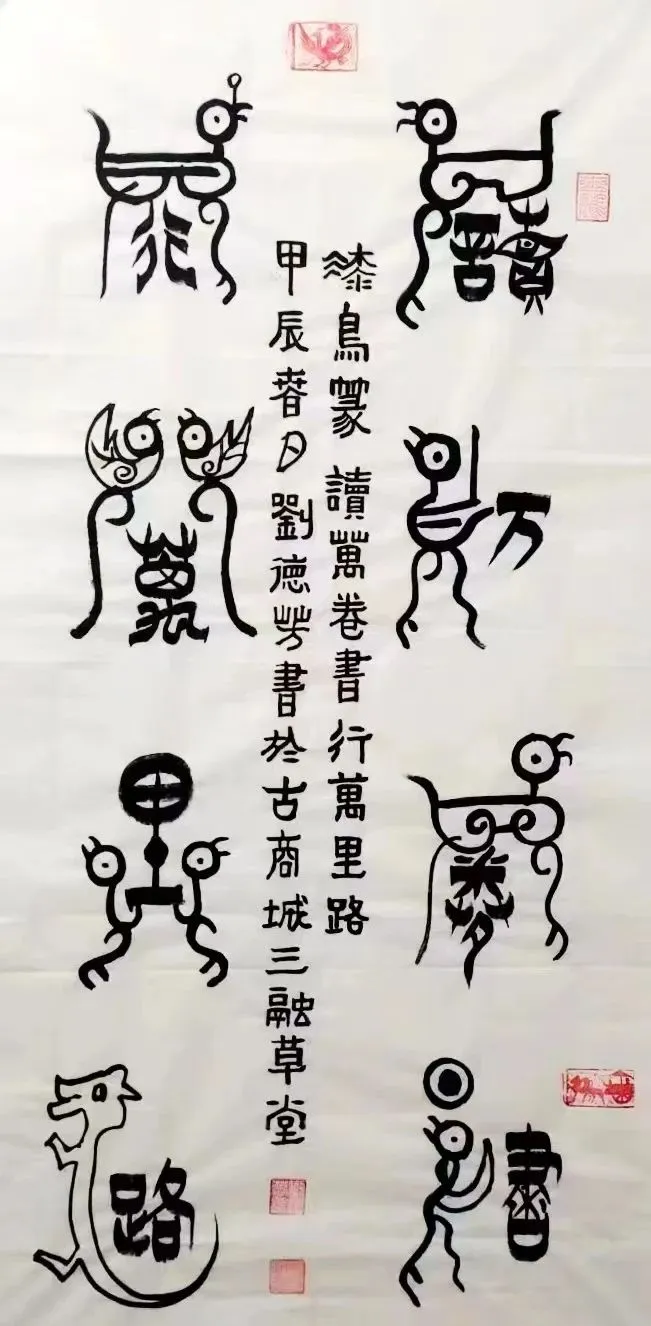 讀万卷書
行萬里路
漆鳥篆 讀萬卷書行萬里路
甲辰春月劉德芳書於古商城三融草堂